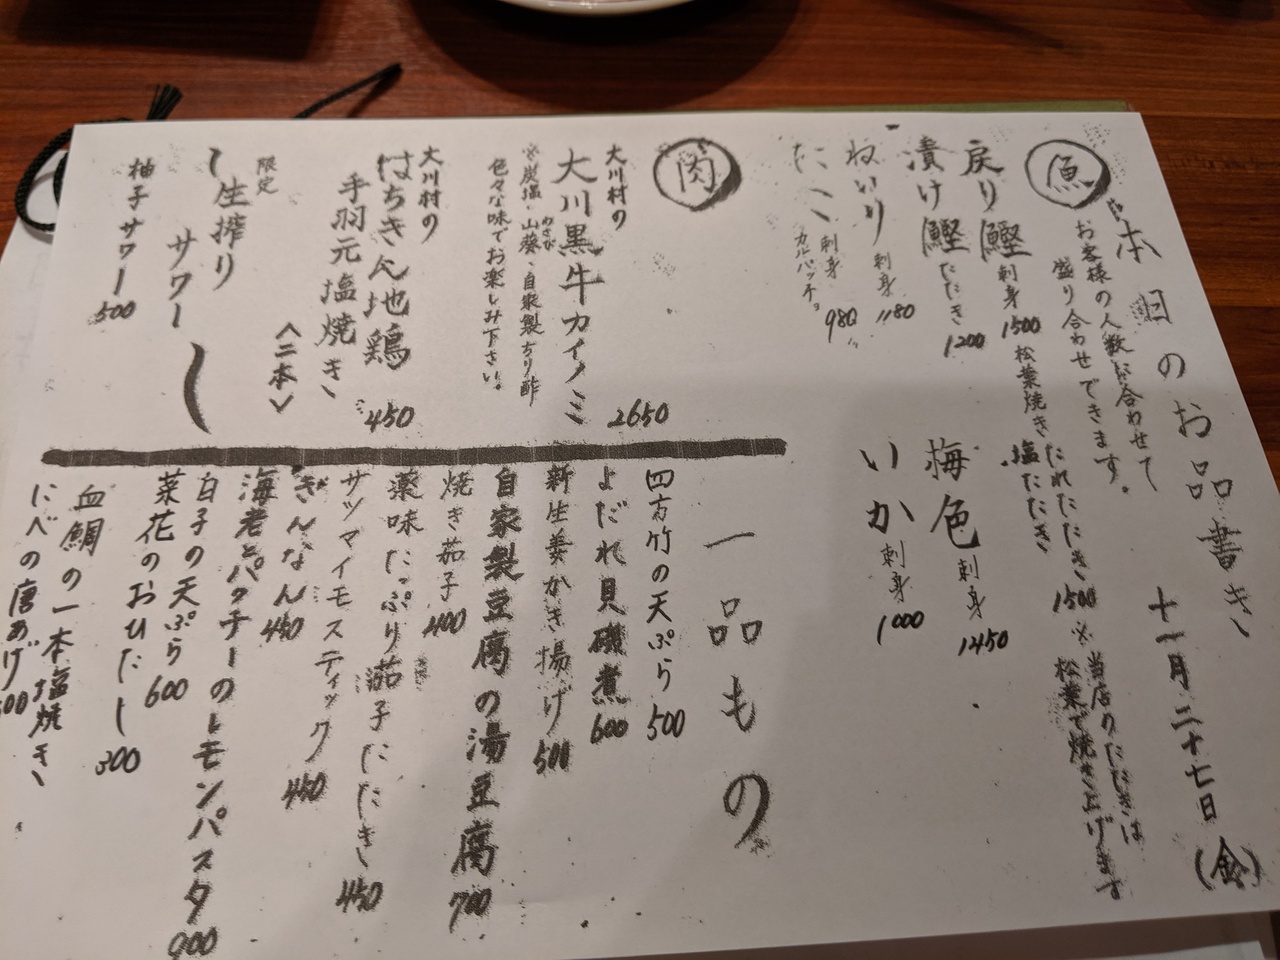 本日のお品書き 十一月二十七日(金)
魚
お客様の人数に合わせて
盛り合わせできます。
※当店のたたきは
松葉で焼き上げます
戻り鰹 刺身 1500
松葉焼き たれたたき 1500
塩たたき
漬け鰹 たたき 1200
梅色 刺身 1450
ねいり 刺身 1180
いか 刺身 1000
たこ 刺身 980
カルパッチョ
肉
大川村の
大川黒牛カイノミ 2650
※炭塩・山葵・自家製ちり酢
わさび
色々な味でお楽しみ下さい。
大川村の
はちきん地鶏
手羽元塩焼き 450
〈二本〉
限定
生搾り
サワー
柚子サワー 500
一品もの
四方竹の天ぷら 500
よだれ貝磯煮 600
新生姜かき揚げ 500
自家製豆腐の湯豆腐 700
焼き茄子 400
薬味たっぷり茄子たたき 450
サツマイモスティック 450
ぎんなん 450
海老とパクチーのレモンパスタ 900
白子の天ぷら 600
菜花のおひたし 300
血鯛の一本塩焼き
にべの唐あげ